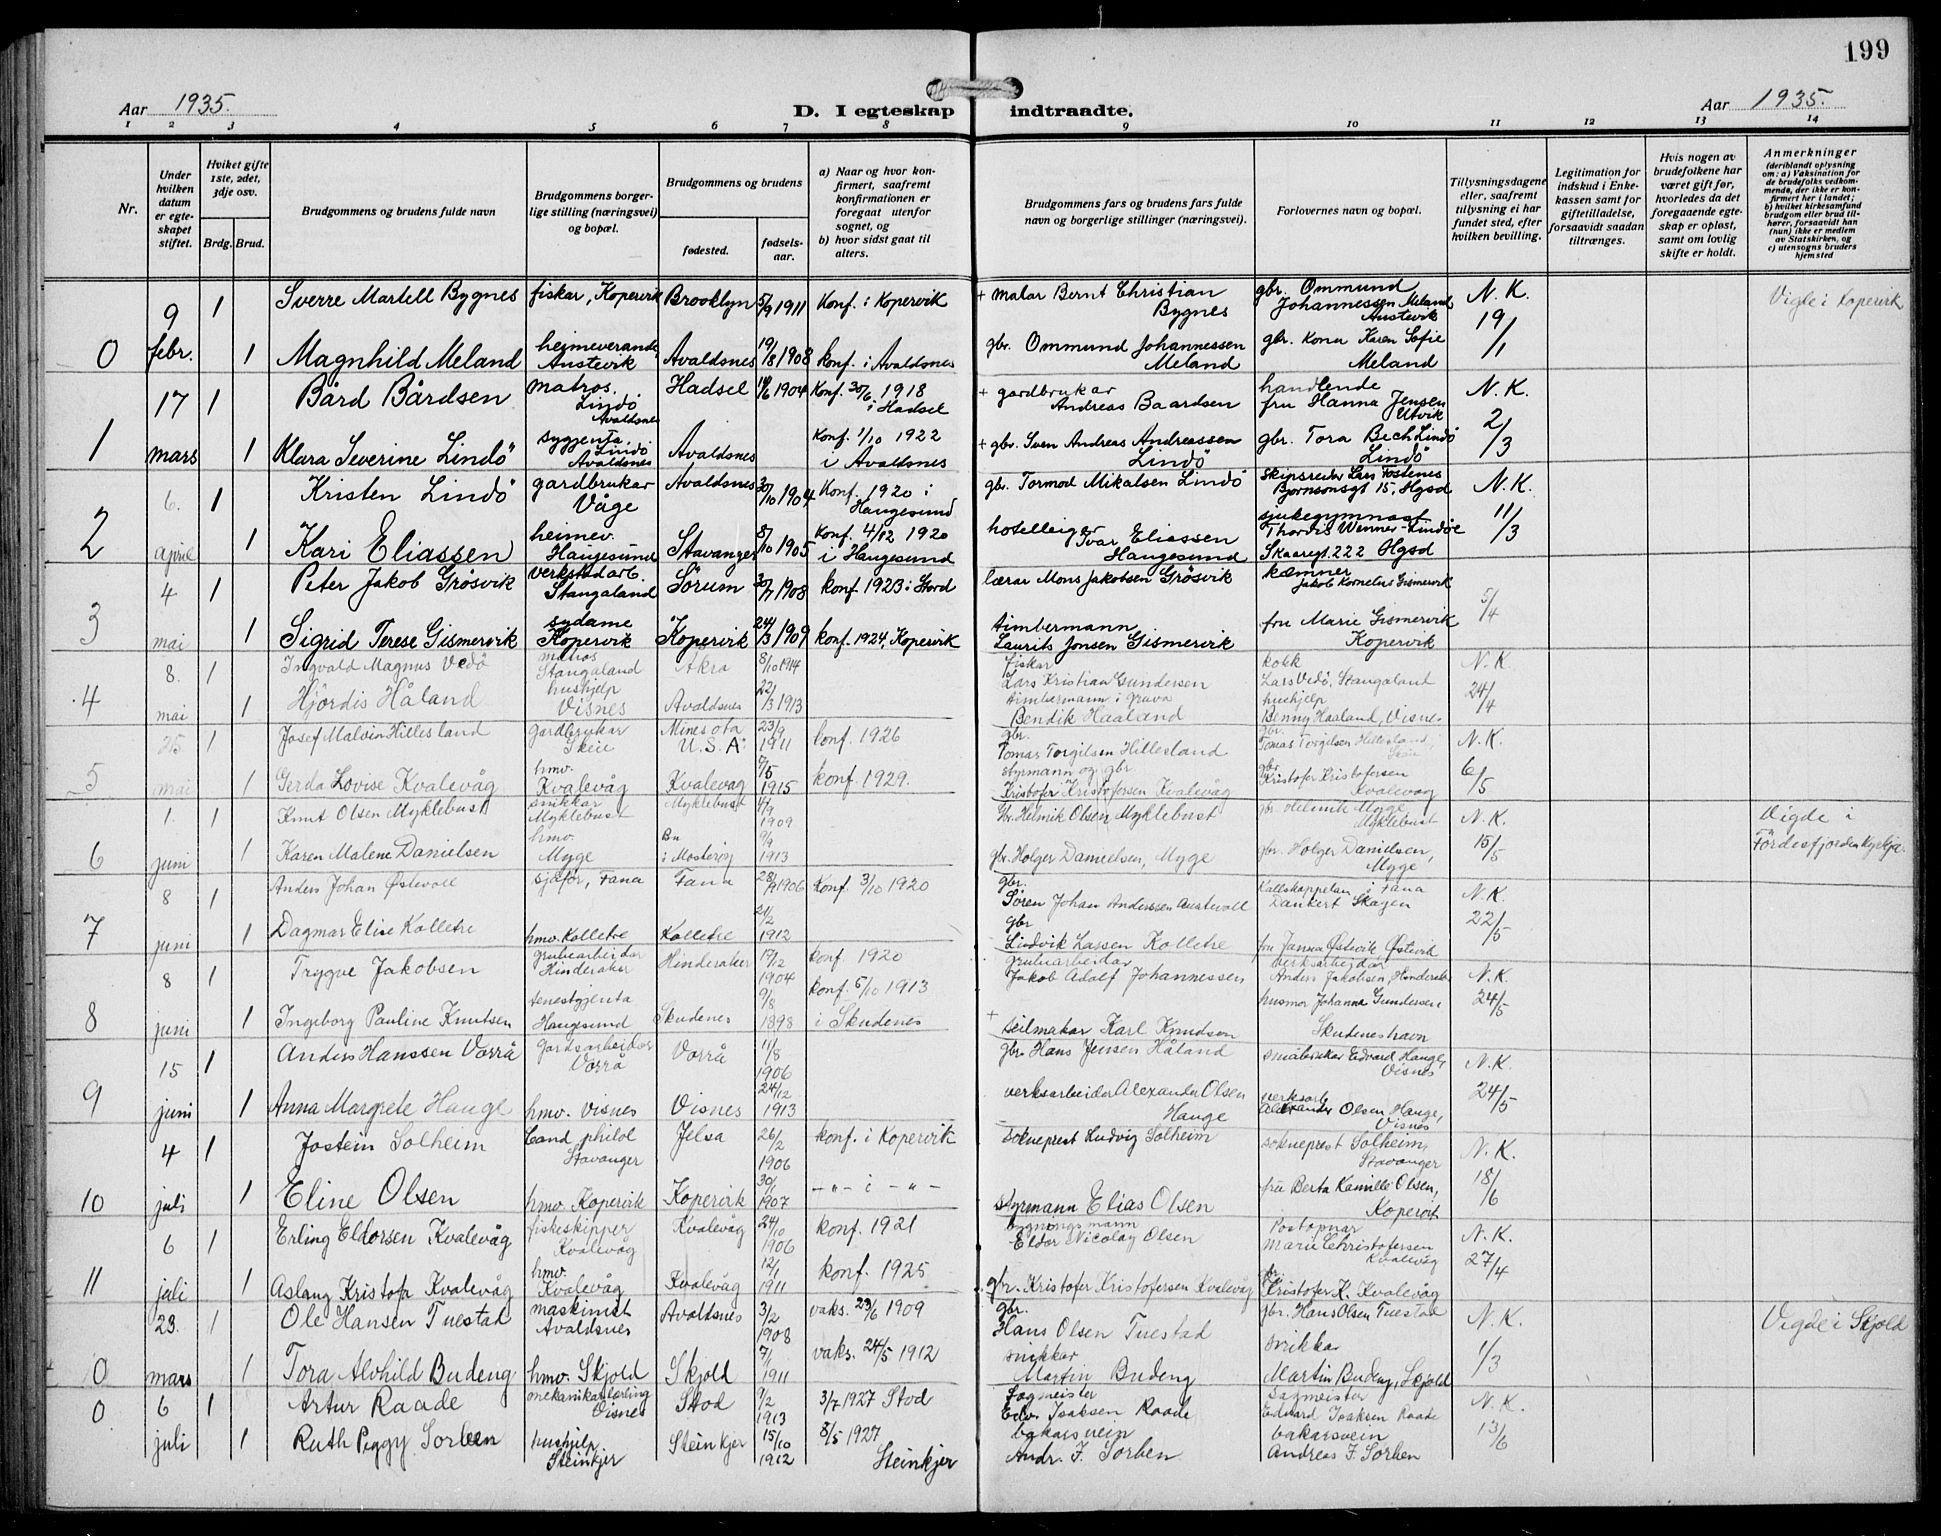 199
Aar 1935.
D. I egteskap indtraadte.
Aar 1935.
1 2 3 4 5 6 7 8 9 10 11 12 13 14
Nr.
Under hvilken datum er egte-skapet stiftet.
Hviket gifte 1ste, 2det, 3dje osv.
Brdg. Brud.
Brudgommens og brudens fulde navn
Brudgommens borger-lige stilling (næringsvei) og bopæl.
Brudgommens og brudens
fødested.
fødsels-aar.
a) Naar og hvor kon-firmert, saafremt konfirmationen er foregaat utenfor sognet, og
b) hvor sidst gaat til alters.
Brudgommens fars og brudens fars fulde navn og borgerlige stillinger (næringsvei).
Forlovernes navn og bopæl.
Tillysningsdagene eller, saafremt tillysning ei har fundet sted, efter hvilken bevilling.
Legitimation for indskud i Enke-kassen samt for giftetilladelse, forsaavidt saadan tiltrænges.
Hvis nogen av brudefolkene har været gift før, hvorledes da det foregaaende egte-skap er opløst, samt om lovlig skifte er holdt.
Anmerkninger
(deriblandt oplysning om: a) Vaksination for de brudefolks vedkom-mende, der ikke er kon-firmert her i landet; b) hvilket kirkesamfund brudgom eller brud til-hører, forsaavidt han (hun) ikke er medlem av Statskirken, og c) utensogns bruders hjemsted
9 1 Sverre Martell Bygnes fiskar, Kopervik Brooklyn 5/9 1911 Konf. i Kopervik + malar Bernt Christian Bygnes gbr. Ommund Johannessen Meland Austevik N.K. Vigle i Kopervik
0 febr. 1 Magnhild Meland heimeverande Austevik Avaldsnes 19/8 1908 konf. i Avaldsnes gbr. Ommund Johannessen Meland gbr. kona Karen Sofie Meland 19/1
17 1 Bård Bårdsen matros. Lindö Avaldsnes Hadsel 1904 Konf. 30/6 1918 i Hadsel + gardbrukar Andreas Baardsen handlende fru Hanna Jensen Utvik N.K.
1 mars 1 Klara Severine Lindö sygjenta, Lindö Avaldsnes Avaldsnes Konf. 1/10 1922 i Avaldsnes + gbr. Sven Andreas Andreassen Lindö gbr. Tora Bech Lindö Lindö 2/3
6. 1 Kristen Lindö gardbrukar Våge Avaldsnes 30/10 1904 Konf. 1920 i Haugesund gbr. Tormod Mikalsen Lindö Skipsreder Lars Tostenes Bjørnsonsgt 15, Hgsd N.K.
2 April 1 Kari Eliassen heimev. Haugesund Stavanger 8/10 1905 Konf. 4/12 1920 i Haugesund hotelleiger Ivar Eliassen Haugesund sjukegymnast Thordis Wenner-Lindöe Skaaregt. 222 Hgsd 11/3
4 1 Peter Jakob Grösvik verkstadarb. Stangaland Sörum 30/7 1908 konf. 1923 i Stord lærar Mons Jakobsen Grösvik kæmner Jakob Kornelius Gismervik
3 mai 1 Sigrid Terese Gismervik sydame Kopervik Kopervik 24/3 1909 konf. 1924, Kopervik timbermann Laurits Jonsen Gismervik fru Marie Gismervik Kopervik 5/4
8. 1 Ingvald Magnus Vedö matros Stangaland Åkra 8/10 1914 fiskar Lars Kristian Gundersen kokk Lars Vedö, Stangaland N.K.
4 mai 1 Hjördis Håland hushjelp Visnes Avaldsnes 22/3 1913 timbermann i gruva Bendik Haaland hushjelp Benny Haaland, Visnes 24/4
25 1 Josef Malvin Hillesland gardbrukar Skeie Minesota U.S.A. 23/9 1911 konf. 1926 gbr. Tomas Torgilsen Hillesland gbr. Tomas Torgilsen Hillesland, Skeie N.K.
5 mai 1 Gerda Lovise Kvalevåg hmv. Kvalevåg Kvalevåg 1915 konf. 1929. styrmann og gbr Kristofer Kristofersen Kvalevåg gbr Kristofer Kristofersen Kvalevåg 6/5
1. 1 Knut Olsen Myklebust snikkar Myklebust Myklebust 1909 Gbr. Helmik Olsen Myklebust gbr. Helmik Myge Myklebust N.K. Vigde i Fördesfjorden kyrkja.
6 juni 1 Karen Malene Danielsen hmv. Myge Bu i Mosterøy 9/9 1913 gbr. Holger Danielsen, Myge gbr. Holger Danielsen, Myge 15/5
8 1 Anders Johan Østevoll sjåför, Fana Fana 1906 Konf. 3/10 1920 gbr. Sören Johan Anderssen Austevoll Kallskappelan i Fana Dankert Skagen N.K.
7 juni 1 Dagmar Elise Kolletre hmv. Kolletre Kolletre 21/2 1912 gbr Ludvik Lassen Kolletre fru Janna Østevik, Østevik 22/5
8 1 Trygve Jakobsen grubearbeidar Hinderaker Hinderaker 17/2 1904 konf. 1920 grubearbeidar Jakob Adolf Johannessen verksarbeidar Anders Jakobsen, Hinderaker N.K.
8 juni 1 Ingeborg Pauline Knutsen tenestgjenta Haugesund Skudenes 9/8 1898 konf. 5/10 1913 i Skudenes + seilmakar Karl Knudsen husmor Johanna Gundersen Skudeneshavn 24/5
15 1 Anders Hanssen Vorrå Gardsarbeidar Vorrå Vorrå 11/8 1906 gbr. Hans Jensen Håland småbrukar Edvard Hauge, Visnes N.K.
9 juni 1 Anna Margrete Hauge hmv. Visnes Visnes 24/12 1913 verksarbeidar Alexander Olsen Hauge verksarb. Alexander Olsen Hauge, Visnes 24/5
4 1 Jostein Solheim Cand. philol Stavanger Jelsa 26/2 1906 konf. i Kopervik sokneprest Ludvig Solheim sokneprest Solheim, Stavanger N.K.
10 juli 1 Eline Olsen hmv. Kopervik Kopervik 30/1 1907 -"- i -"- styrmann Elias Olsen fru Berta Kamille Olsen, Kopervik 18/6
6 1 Erling Eldorsen Kvalevåg fiskeskipper Kvalevåg Kvalevåg 24/10 1906 konf. 1921 bygningsmann Eldor Nicolay Olsen Postopnar Marie Christofersen Kvalevåg N.K.
11 juli 1 Aslaug Kristofa Kvalevåg hmv. Kvalevåg Kvalevåg 12/1 1911 konf. 1925 gbr. Kristofer Kristofersen Kvalevåg gbr. Kristofer K. Kvalevåg 27/4
23. 1 Ole Hansen Tuestad maskinist Avaldsnes Avaldsnes 3/2 1908 vaks. 23/6 1909 gbr. Hans Olsen Tuestad gbr. Hans Olsen Tuestad N.K. Vigde i Skjold
0 mars 1 Tora Alvhild Budeng hmv. Skjold Skjold 7/1 1911 vaks. 24/5 1912 snikkar Martin Budeng snikkar Martin Budeng, Skjold 1/3
0 6 1 Artur Raade mekanikarlærling Visnes Stod 9/2 1913 3/7 1927 Stod Sagmeister Edv. Isaksen Raade Sagmeister Edvard Isaksen Raade N.K.
juli 1 Ruth Peggy Sorben hushjelp Steinkjer Steinkjer 15/10 1912 8/5 1927 Steinkjer bakarsvein Andr. F. Sorben bakarsvein Andreas F. Sorben 13/6